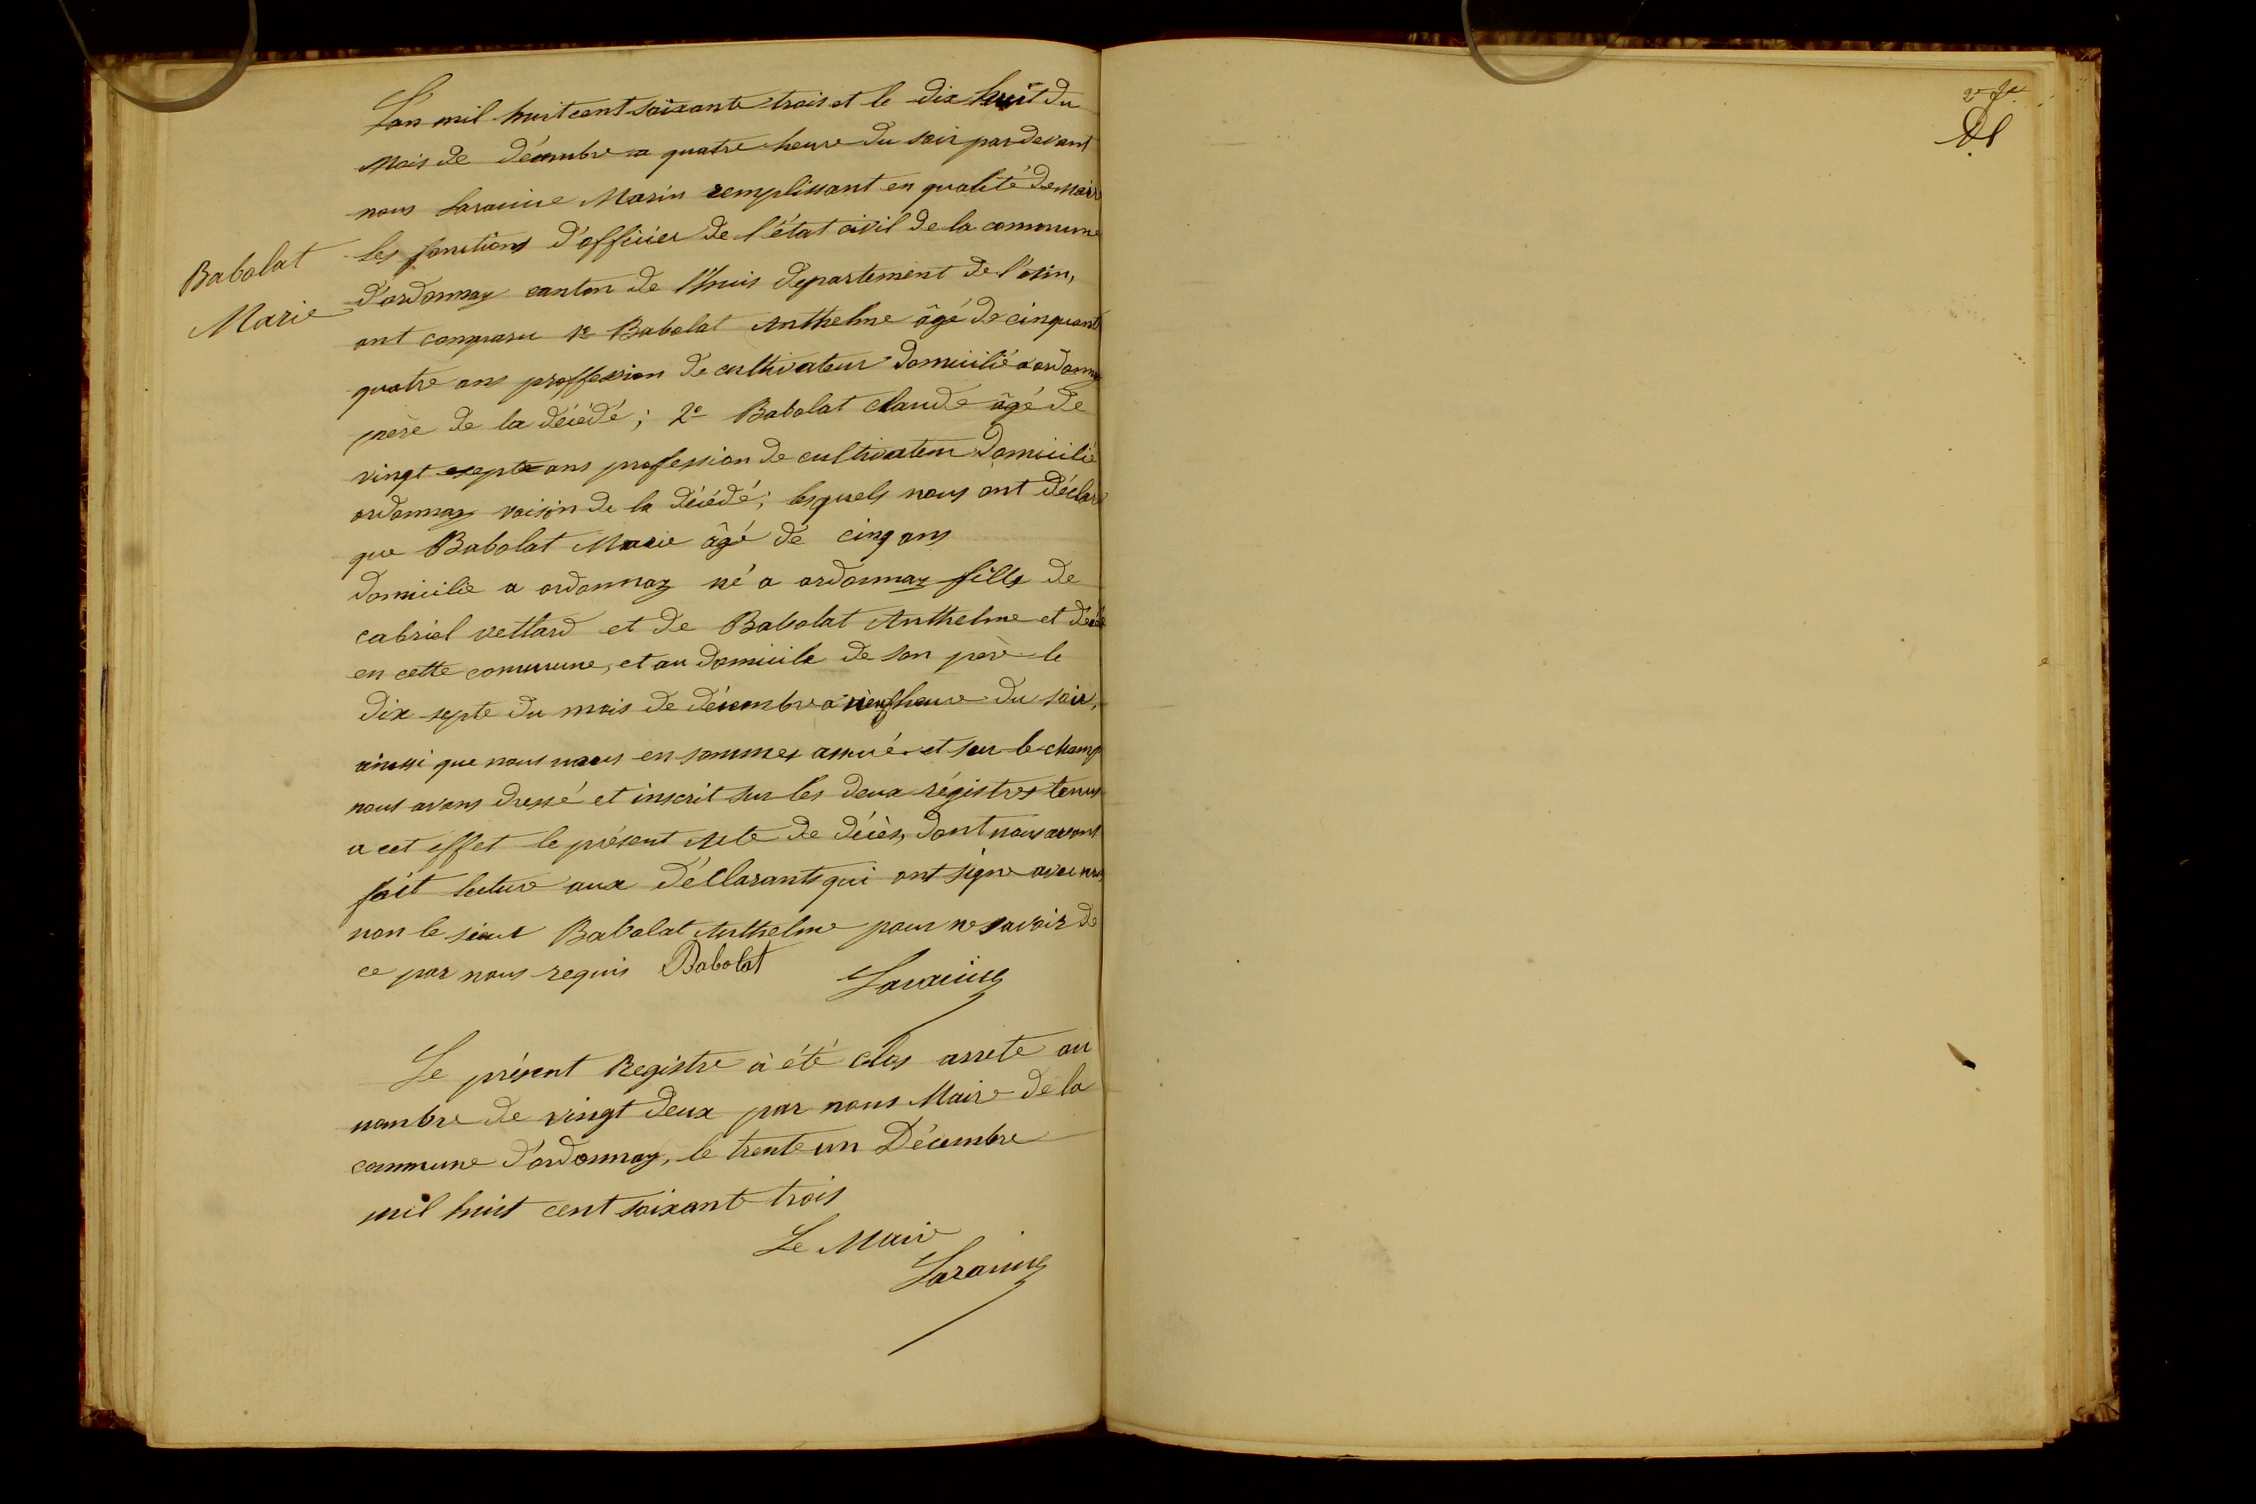 L'an mil huit cent soixante trois et le dix huit du
Mois de décembre a quatre heure du soir pardevant
nous Marin remplissant en qualité de maire
les fonctions d'officier de l'état civil de la commune
Babolat
Marie
d'ordonnaz canton de l'huis departement de l'ain,
ont comparu 1º Babolat Anthelme âgé de cinquante
quatre ans proffession de cultivateur domicilié a ordonnaz
père de la décédé; 2º Babolat claude âgé de
vingt septe ans profession de cultivateur domicilié
ordonnaz voisin de la décédé; lesquels nous ont déclaré
que Babolat Marie âgé de cinq ans
domicilie a ordonnaz né a ordonnaz fille de
cabriel vettard et de Babolat Anthelme et décédé
en cette commune, et au domicile de son père le
dix septe du mois de décembre a neuf heure du soir,
ainsi que nous nous en sommes assuré et sur le champ
nous avons dressé et inscrit sur les deux régistres tenus
a cet effet le présent Acte de décès, dont nous avons
fait lecture aux déclarants qui ont signe avec nous
non le sieur Babolat Anthelme pour ne savoir de
ce par nous requis Babolat
Le présent Registre à été clos arrete au
nombre de vingt deux par nous Maire de la
commune d'ordonnaz, le trente un Décembre
mil huit cent soixante trois
Le Maire